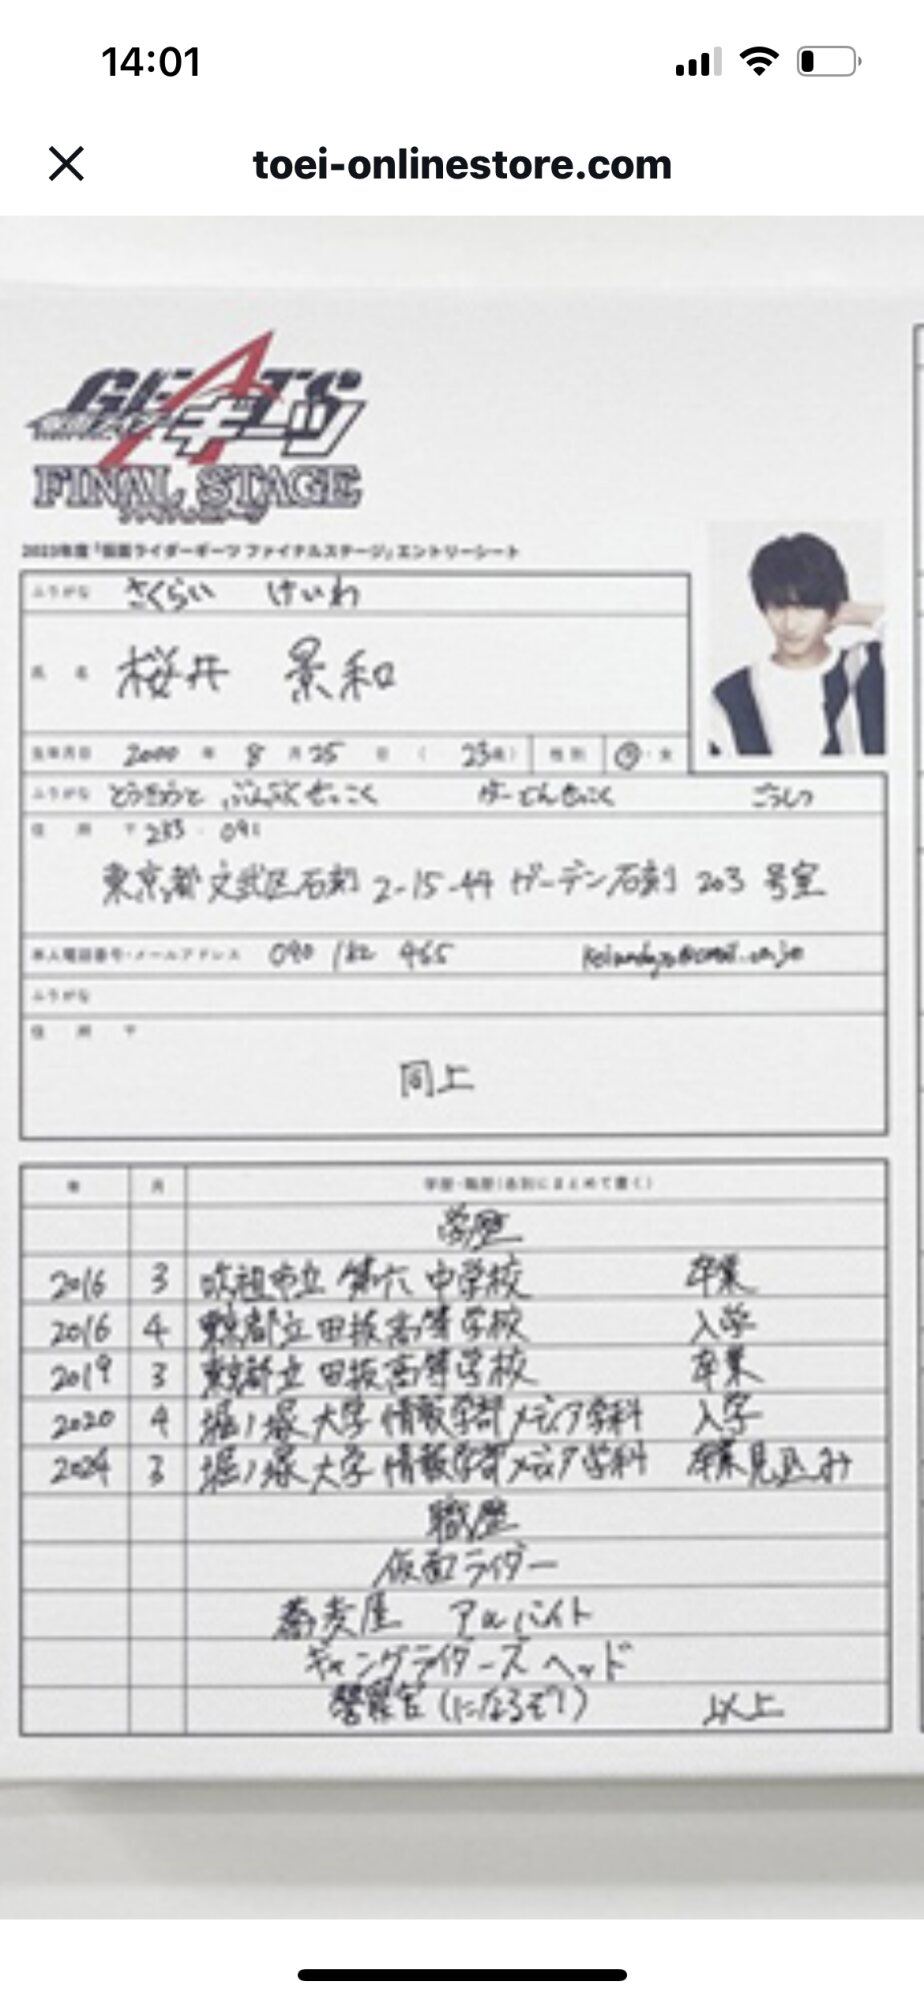 14:01
toei-onlinestore.com
GEATS
仮面ライダー ギーツ
FINAL STAGE
ファイナルステージ
2023年度「仮面ライダーギーツ ファイナルステージ」エントリーシート
ふりがな さくらい けいわ
氏 名 桜井 景和
生年月日 2000 年 8 月 25 日 ( 23歳) 性別 男・女
ふりがな とうきょうと
住 所 〒233 091
東京都文武区石刻 2-15-44 ガーデン石刻 203 号室
本人電話番号・メールアドレス 090 182 465
ふりがな
住 所 〒
同上
年 月 学歴・職歴(各別にまとめて書く)
学歴
2016 3 市立 第六 中学校 卒業
2016 4 東京都立 田坂高等学校 入学
2019 3 東京都立 田坂高等学校 卒業
2020 4 堀ノ塚大学 情報学部メディア学科 入学
2024 3 堀ノ塚大学 情報学部メディア学科 卒業見込み
職歴
仮面ライダー
蕎麦屋 アルバイト
ギャングライダーズ ヘッド
警察官(になるぞ!) 以上